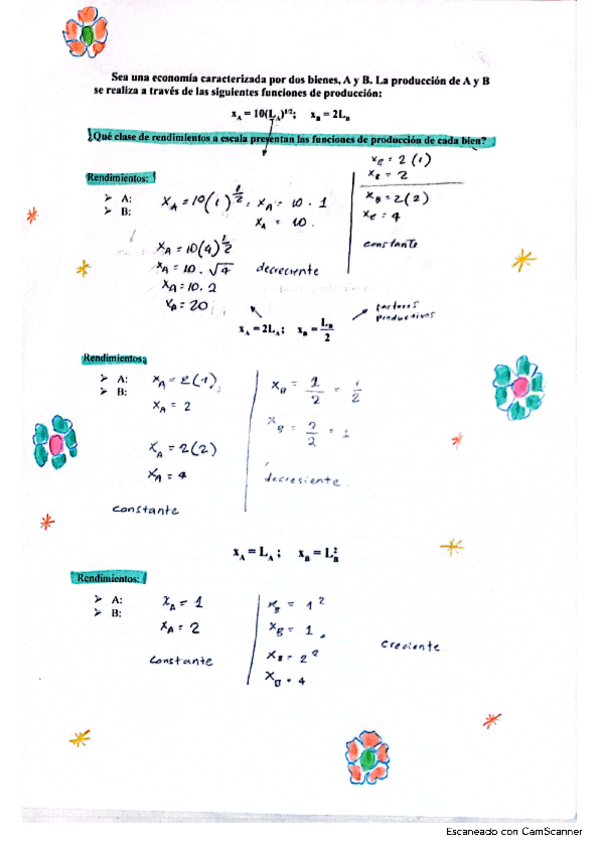 Sea una economía caracterizada por dos bienes, A y B. La producción de A y B
se realiza a través de las siguientes funciones de producción:
x_A = 10(L_A)^1/2; x_B = 2L_B
¿Qué clase de rendimientos a escala presentan las funciones de producción de cada bien?
Rendimientos:
➢ A:
➢ B:
X_A = 10(1)^1/2, X_A = 10 . 1
X_A = 10.
X_A = 10(4)^1/2
X_A = 10 . √4 decreciente
X_A = 10 . 2
X_A = 20
X_B = 2(1)
X_B = 2
X_B = 2(2)
X_B = 4
constante
x_A = 2L_A; x_B = L_B/2
factores
productivos
Rendimientos:
➢ A:
➢ B:
X_A = 2(1)
X_A = 2
X_A = 2(2)
X_A = 4
constante
X_B = 1/2 = 1/2
X_B = 2/2 = 1
decresiente
x_A = L_A; x_B = L_B^2
Rendimientos:
➢ A:
➢ B:
X_A = 1
X_A = 2
constante
X_B = 1^2
X_B = 1
X_B = 2^2
X_B = 4
creciente
Escaneado con CamScanner